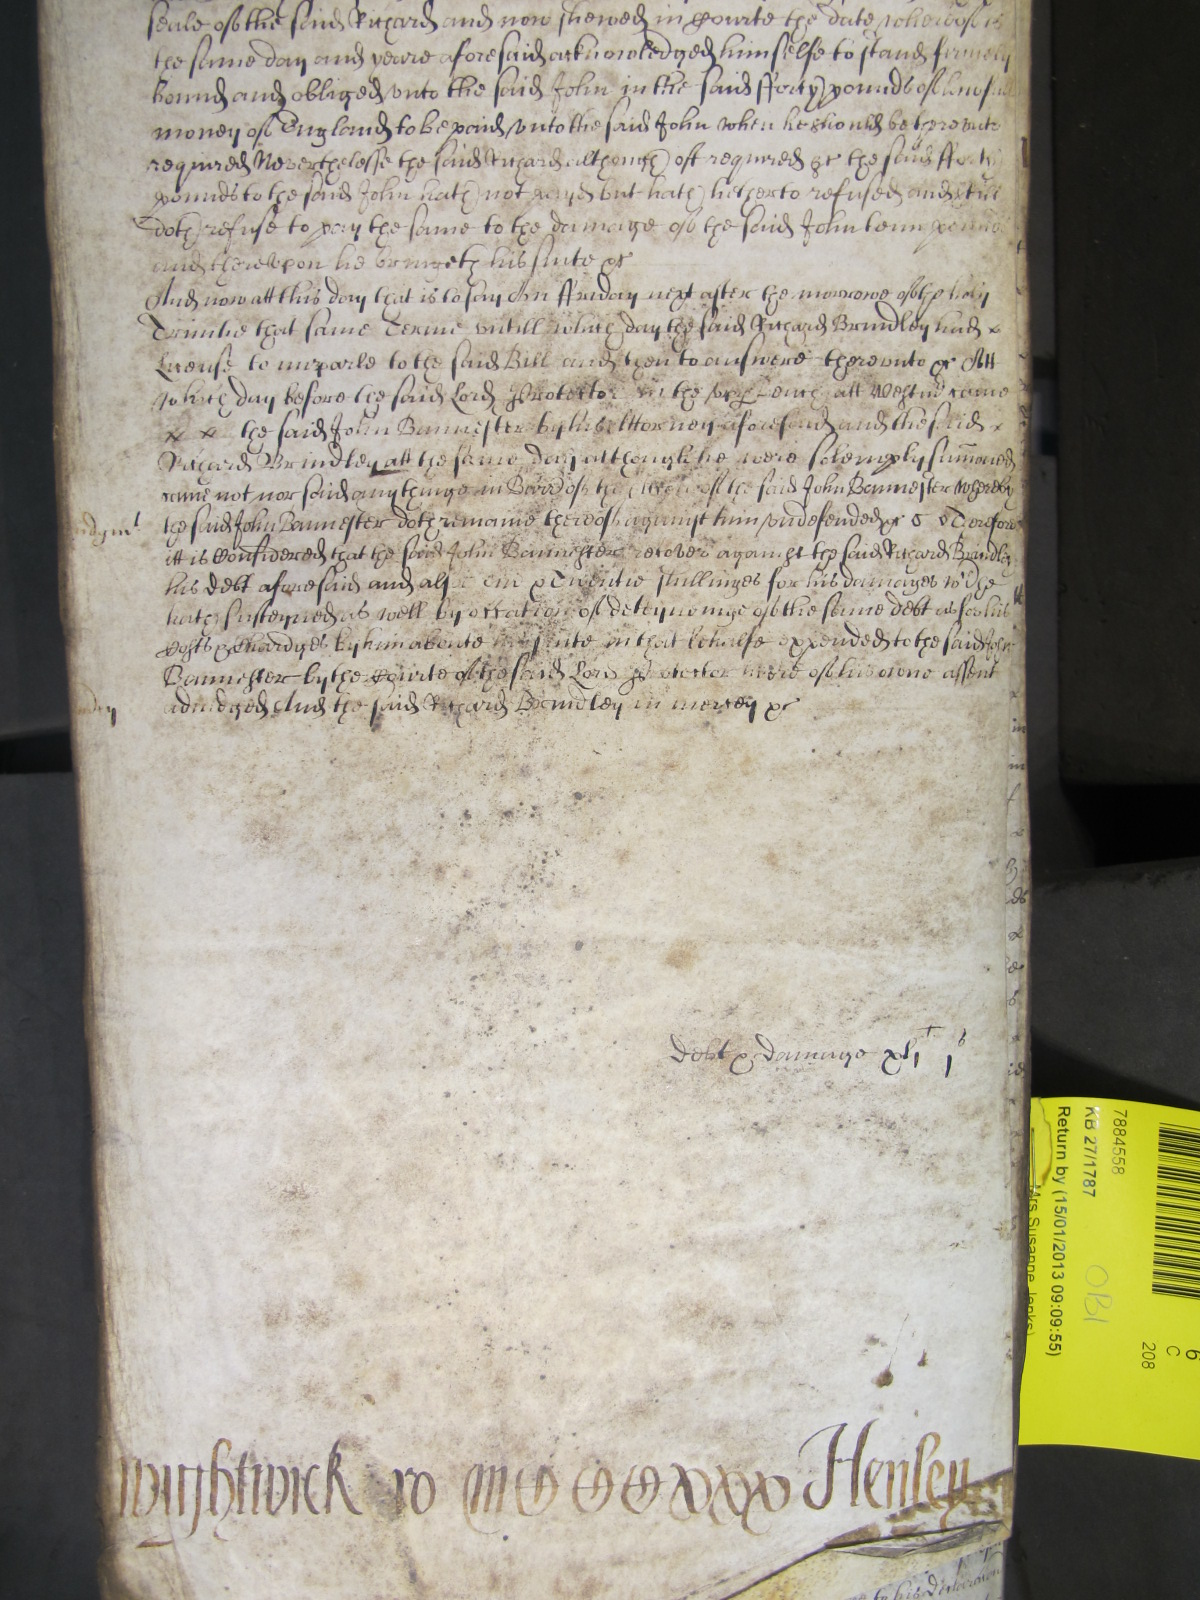 seale of the said Richard and now shewed in Courte the date whereof is
the same day and yeare aforesaid acknowledged himselfe to stand firmely
bound and obliged unto the said John in the said fforty pounds of lawfull
money of England to be paid unto the said John when he should be thereunto
required Neverthelesse the said Richard although oft required &c the said fforty
pounds to the said John hath not payd but hath hetherto refused and still
doth refuse to pay the same to the damage of the said John tenn pounds
and thereupon he bringeth his suite &c
And now att this day that is to say On ffriday next after the morrowe of the holy
Trinitie that same Terme untill which day the said Richard Brindley had x
License to imparle to the said Bill and then to answere thereunto &c Att
which day before the said Lord Protector in the upp bench att Westm came
x x the said John Bannester by his Attorney aforesaid and the said x
Richard Brindley att the same day although he were solemply sumoned
came not nor said any thinge in Barr of the Accon of the said John Bannester whereby
Judgmt
the said John Bannester doth remaine thereof against him undefended &c Therefore
itt is Considered that the said John Bannester recover against the said Richard Brindley
his debt aforesaid and also Twentie shillinges for his damages wch he
hath susteyned as well by occation of deteyninge of the same debt as for his
Costs & chardges by him aboute his suite in that behalfe expended to the said John
Bannester by the Courte of the said Lord Protector here of his owne assent
adiudged And the said Richard Brindley in mercy &c
Debt & damage xli
wightwick ro Henley
to his Declaracon
7884558
KB 27/1787
Return by (15/01/2013 09:09:55)
Mrs Susanne Jenks)
OB1
6
C
208